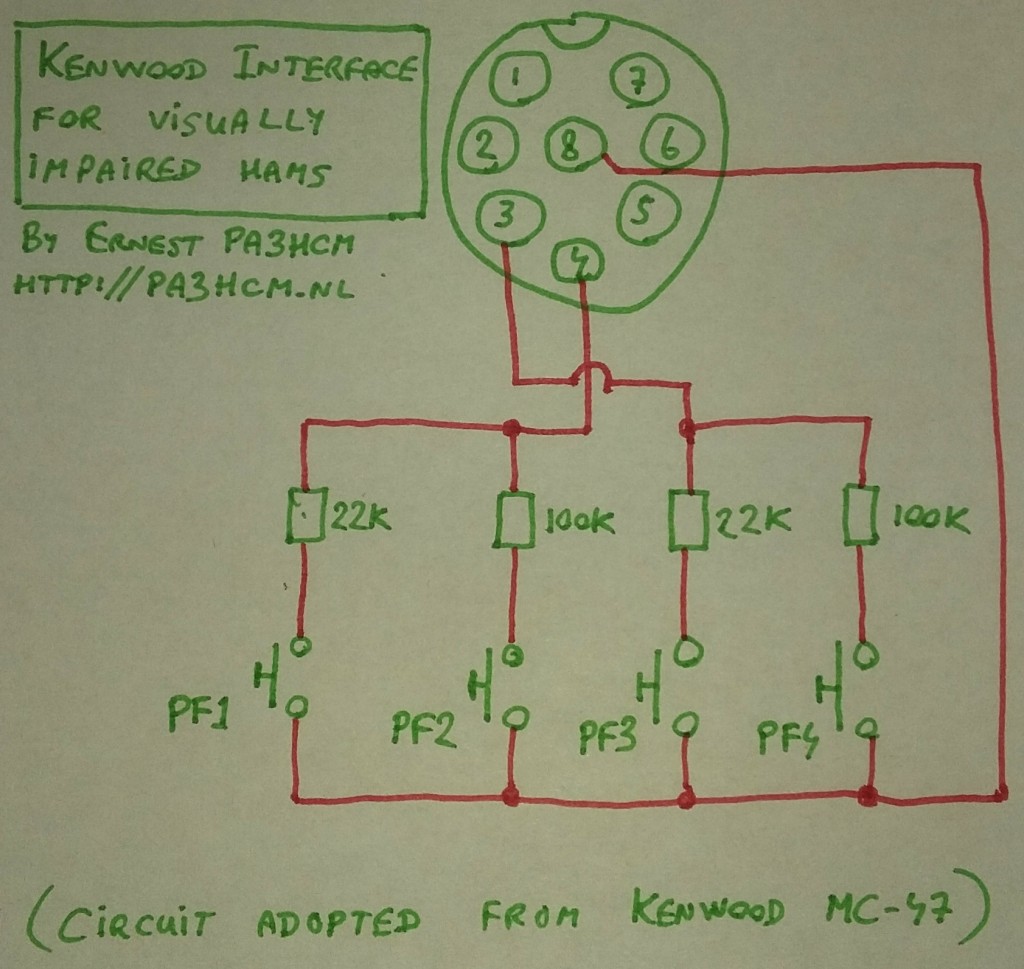 KENWOOD INTERFACE
FOR VISUALLY
IMPAIRED HAMS
BY ERNEST PA3HCM
HTTP://PA3HCM.NL
1 7
2 8 6
3 5
4
22K 100K 22K 100K
PF1 PF2 PF3 PF4
(CIRCUIT ADOPTED FROM KENWOOD MC-47)